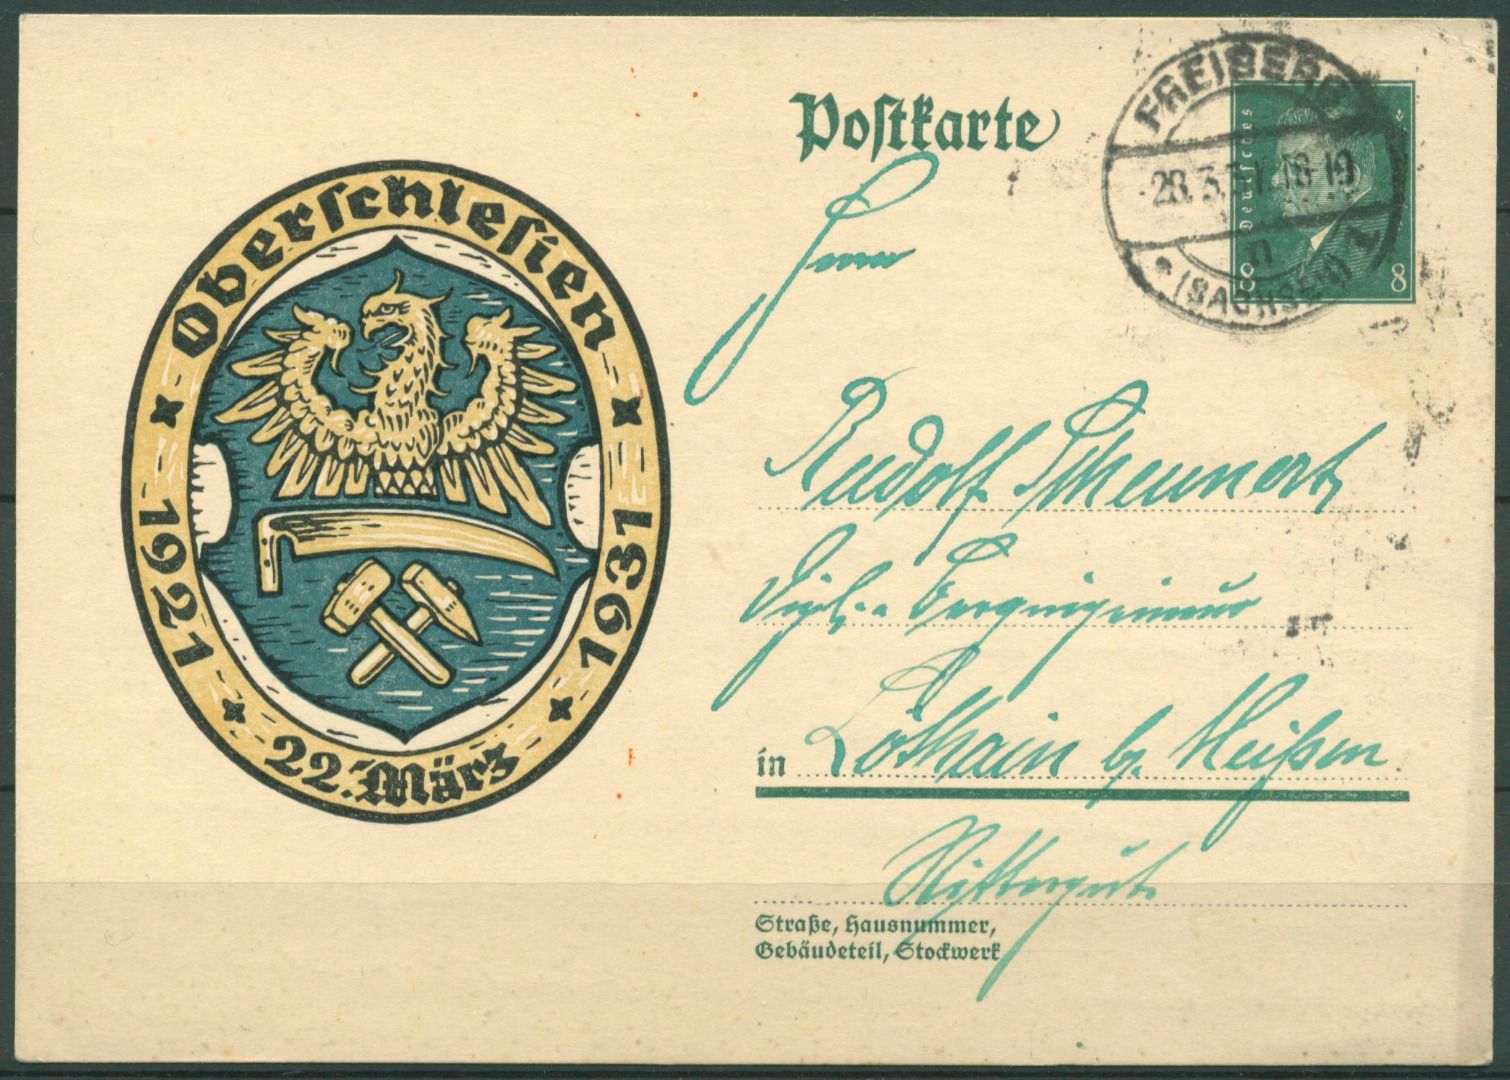 Oberschlesien
1921
1931
22. März
Postkarte
FREIBERG
28.3.31 18-19
(SACHSEN) 1
n
Deutsches
8 8
Herrn
Rudolf Scheunert,
Dipl.-Bergingenieur
in Löthain b. Meißen
Rittergut.
Straße, Hausnummer,
Gebäudeteil, Stockwerk